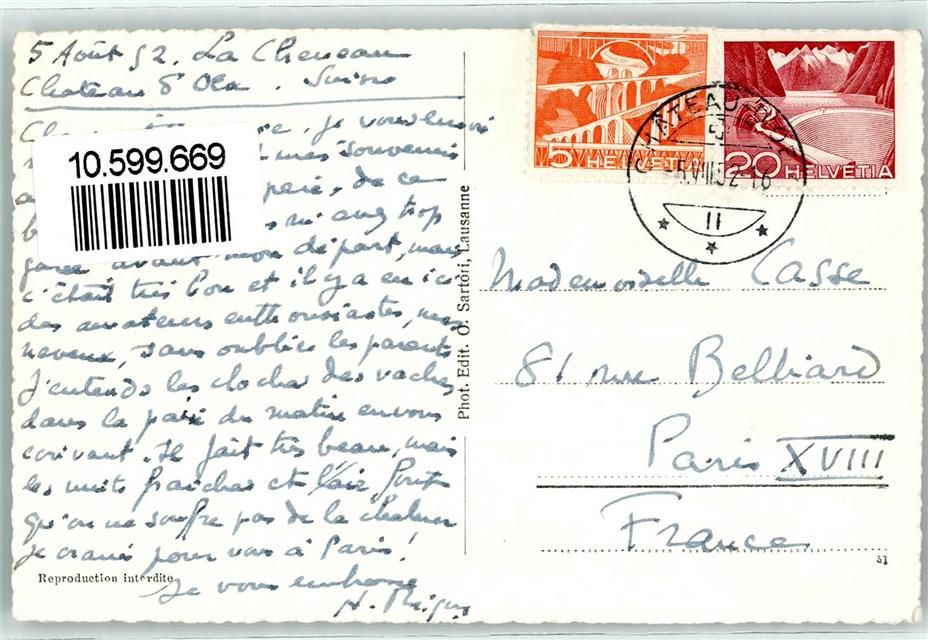 5 Août 52. La
Chateau d'Oex. Suisse
je vous envoi
mes souvenirs
de ce
trop
avant mon départ, mais
c'était très bon et il y a eu ici
des amateurs enthousiastes, mes
neveux, sans oublier les parents
J'entends les cloches des vaches
dans la paix du matin en vous
écrivant. Il fait très beau, mais
les nuits fraiches et l'air font
qu'on ne souffre pas de la chaleur
je crains pour vous à Paris!
Je vous embrasse
10.599.669
Reproduction interdite
Phot. Edit. O. Sartori, Lausanne
5 HELVETIA
20 HELVETIA
CHÂTEAU-D'OEX
-5.VIII.52-16
II
Mademoiselle Casse
81 rue Belliard
Paris XVIII
France
51